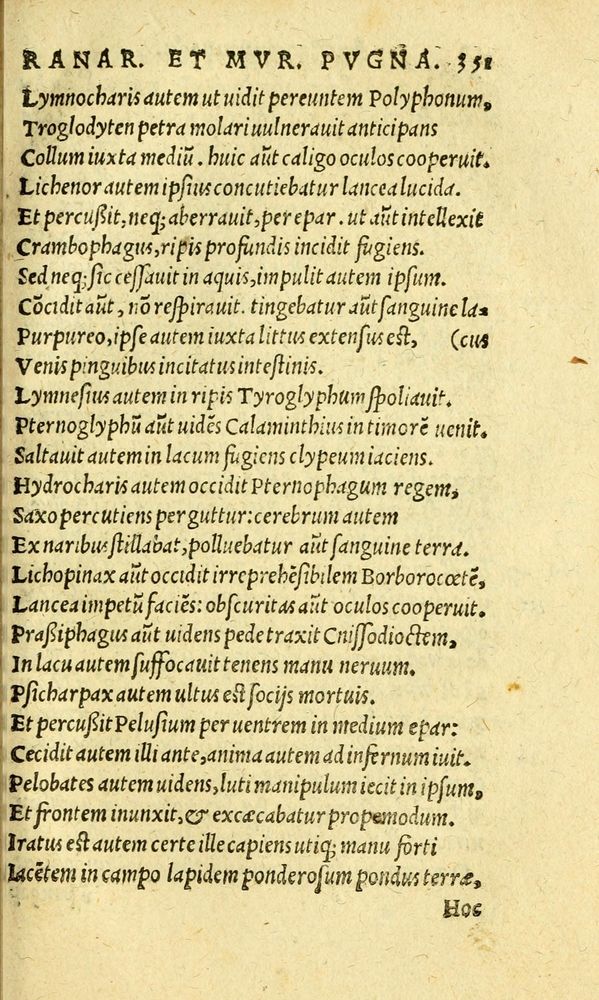 RANAR. ET MVR. PVGNA. 351
Lymnocharis autem ut uidit pereuntem Polyphonum,
Troglodyten petra molari uulnerauit anticipans
Collum iuxta mediũ. huic aũt caligo oculos cooperuit.
Lichenor autem ipsius concutiebatur lancea lucida.
Et percußit, neq; aberrauit, per epar. ut aũt intellexit
Crambophagus, ripis profundis incidit fugiens.
Sed neq; sic cessauit in aquis, impulit autem ipsum.
Cõcidit aũt, nõ respirauit. tingebatur aũt sanguine la-
Purpureo, ipse autem iuxta littus extensus est, (cus
Venis pinguibus incitatus intestinis.
Lymnesius autem in ripis Tyroglyphum spoliauit.
Pternoglyphũ aũt uidẽs Calaminthius in timorẽ uenit.
Saltauit autem in lacum fugiens clypeum iaciens.
Hydrocharis autem occidit Pternophagum regem,
Saxo percutiens per guttur: cerebrum autem
Ex naribus stillabat, polluebatur aũt sanguine terra.
Lichopinax aũt occidit irreprehẽsibilem Borborocœtẽ,
Lancea impetũ faciẽs: obscuritas aũt oculos cooperuit.
Praßiphagus aũt uidens pede traxit Cnissodioctem,
In lacu autem suffocauit tenens manu neruum.
Psicharpax autem ultus est socijs mortuis.
Et percußit Pelusium per uentrem in medium epar:
Cecidit autem illi ante, anima autem ad infernum iuit.
Pelobates autem uidens, luti manipulum iecit in ipsum,
Et frontem inunxit, & excæcabatur propemodum.
Iratus est autem certe ille capiens utiq; manu forti
Iacẽtem in campo lapidem ponderosum pondus terræ,
Hoc